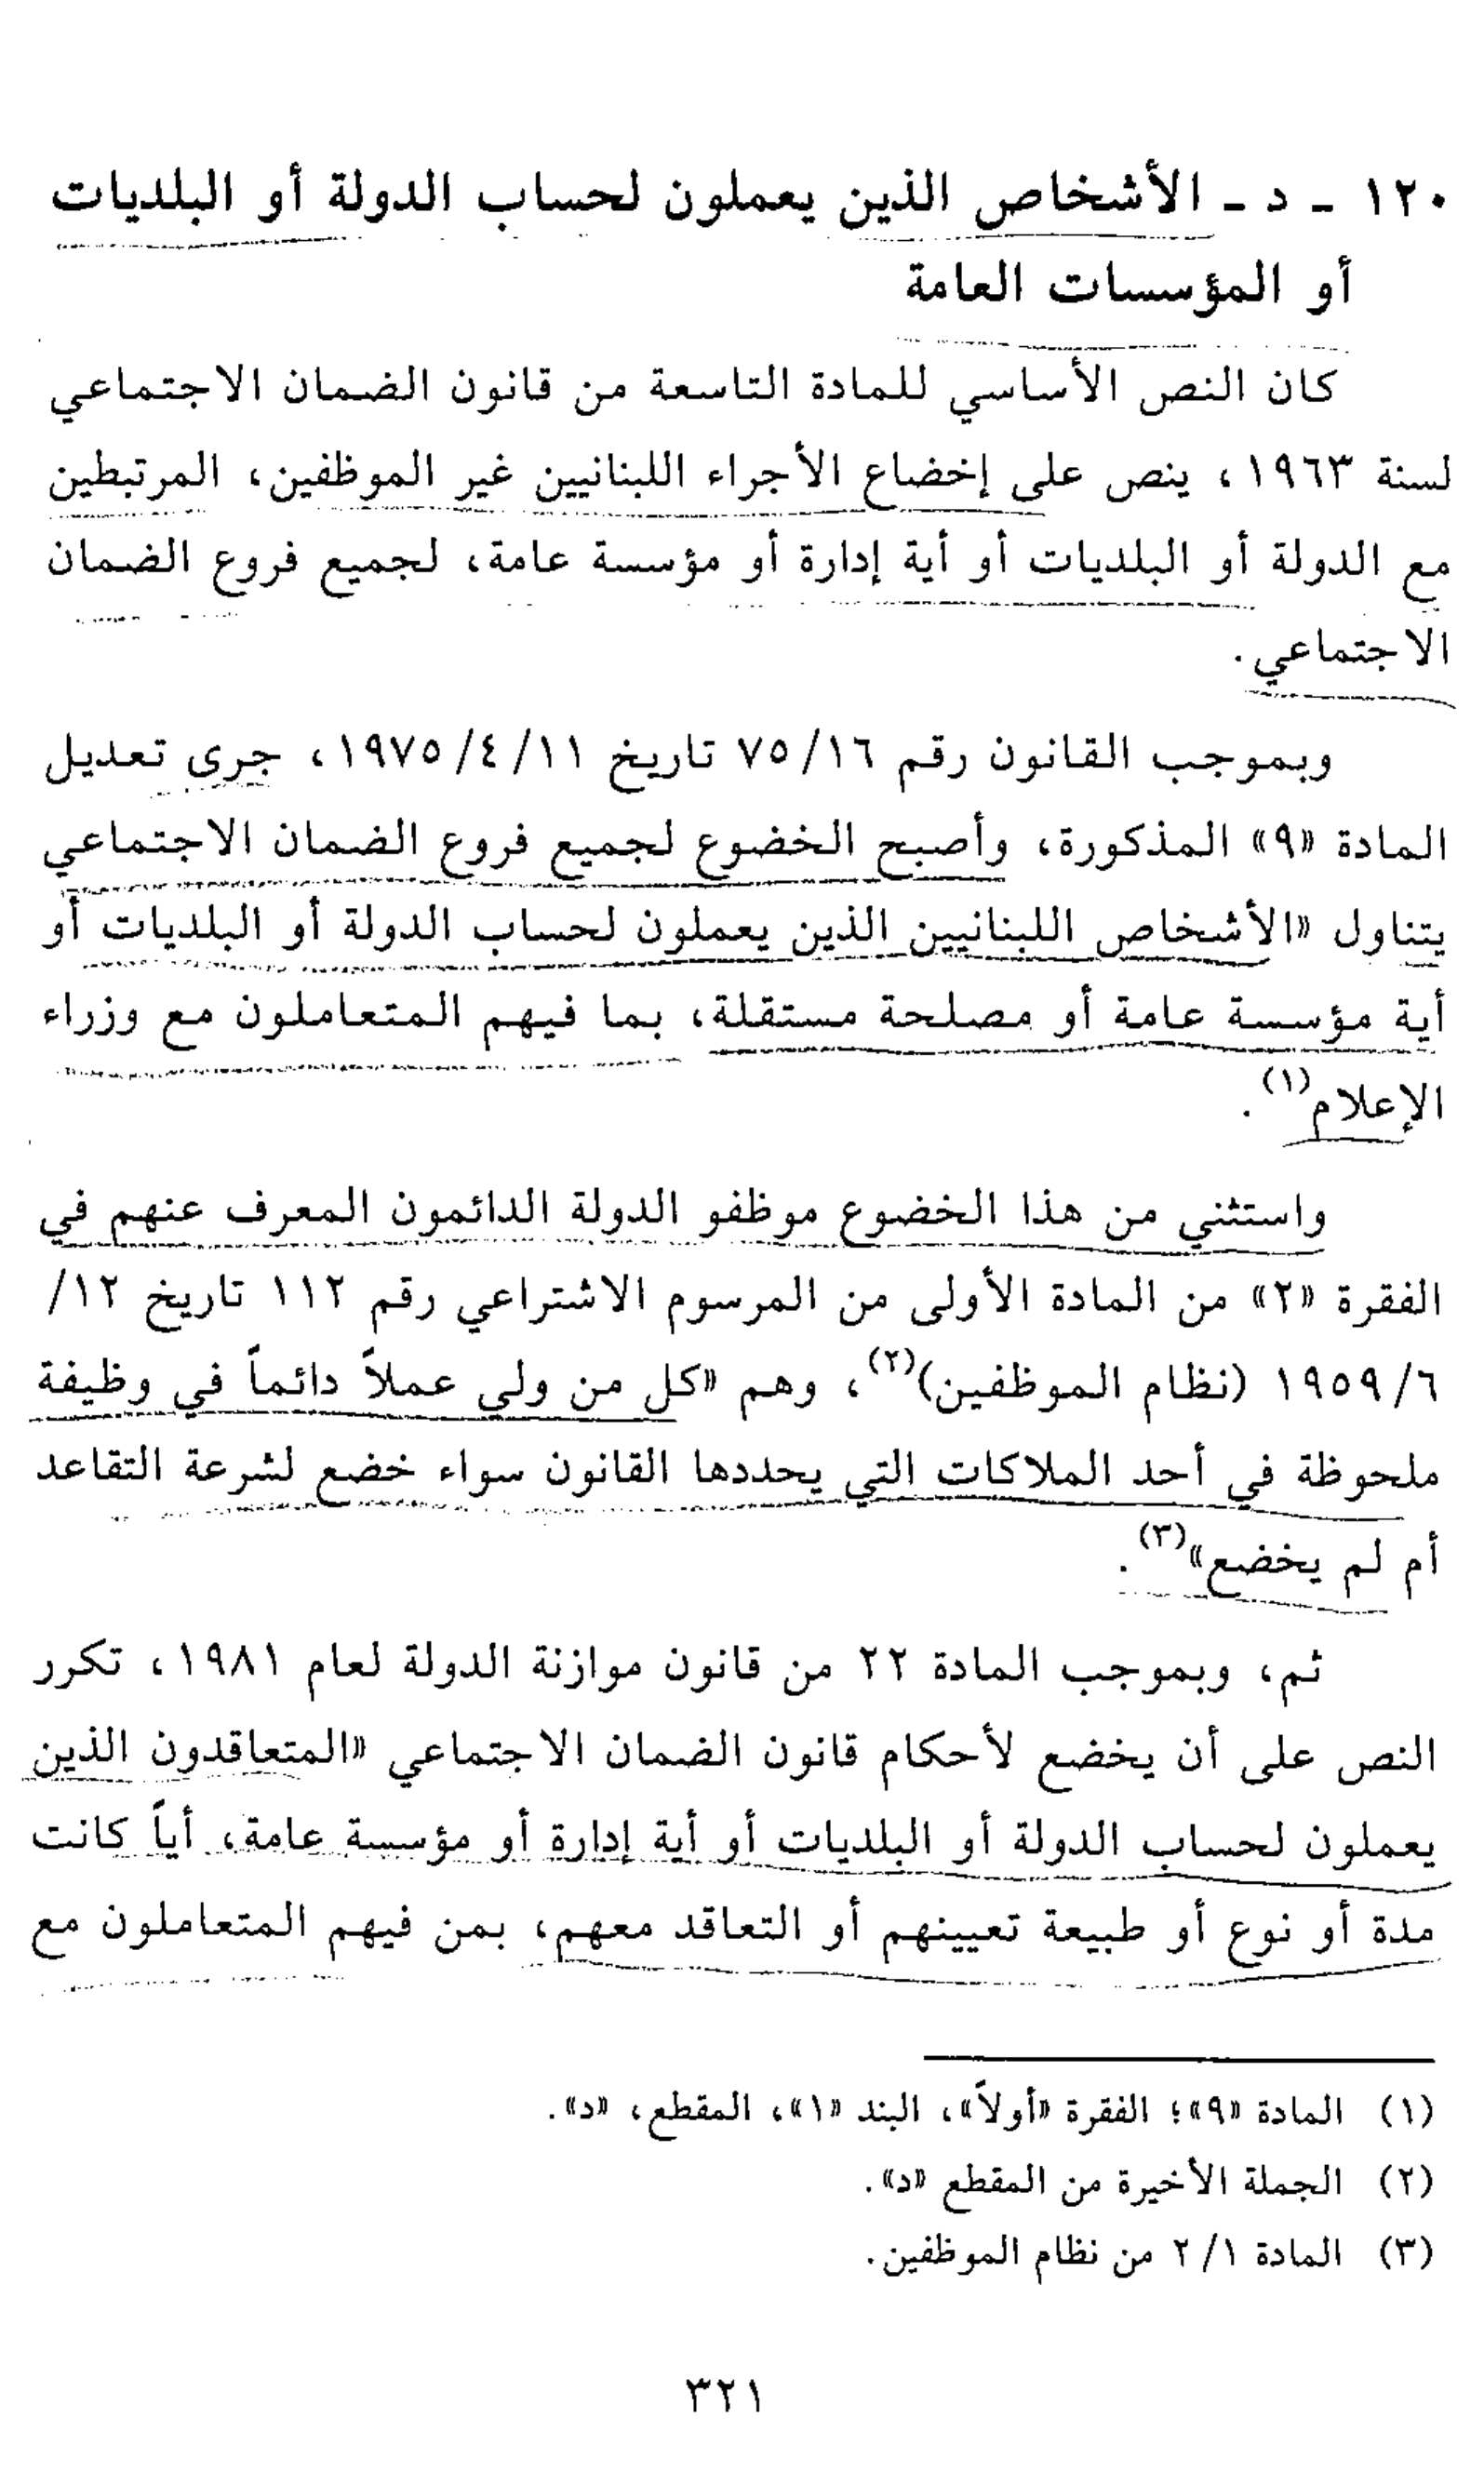 ١٢٠ ـ د ـ الأشخاص الذين يعملون لحساب الدولة أو البلديات
أو المؤسسات العامة
كان النص الأساسي للمادة التاسعة من قانون الضمان الاجتماعي
لسنة ١٩٦٣، ينص على إخضاع الأجراء اللبنانيين غير الموظفين، المرتبطين
مع الدولة أو البلديات أو أية إدارة أو مؤسسة عامة، لجميع فروع الضمان
الاجتماعي.
وبموجب القانون رقم ٧٥/١٦ تاريخ ١٩٧٥/٤/١١، جرى تعديل
المادة «٩» المذكورة، وأصبح الخضوع لجميع فروع الضمان الاجتماعي
يتناول «الأشخاص اللبنانيين الذين يعملون لحساب الدولة أو البلديات أو
أية مؤسسة عامة أو مصلحة مستقلة، بما فيهم المتعاملون مع وزراء
الإعلام(١).
واستثني من هذا الخضوع موظفو الدولة الدائمون المعرف عنهم في
الفقرة «٢» من المادة الأولى من المرسوم الاشتراعي رقم ١١٢ تاريخ ١٢/
١٩٥٩/٦ (نظام الموظفين)(٢)، وهم «كل من ولي عملاً دائماً في وظيفة
ملحوظة في أحد الملاكات التي يحددها القانون سواء خضع لشرعة التقاعد
أم لم يخضع»(٣).
ثم، وبموجب المادة ٢٢ من قانون موازنة الدولة لعام ١٩٨١، تكرر
النص على أن يخضع لأحكام قانون الضمان الاجتماعي «المتعاقدون الذين
يعملون لحساب الدولة أو البلديات أو أية إدارة أو مؤسسة عامة، أياً كانت
مدة أو نوع أو طبيعة تعيينهم أو التعاقد معهم، بمن فيهم المتعاملون مع
(١) المادة «٩»؛ الفقرة «أولاً»، البند «١»، المقطع، «د».
(٢) الجملة الأخيرة من المقطع «د».
(٣) المادة ٢/١ من نظام الموظفين.
٣٢١